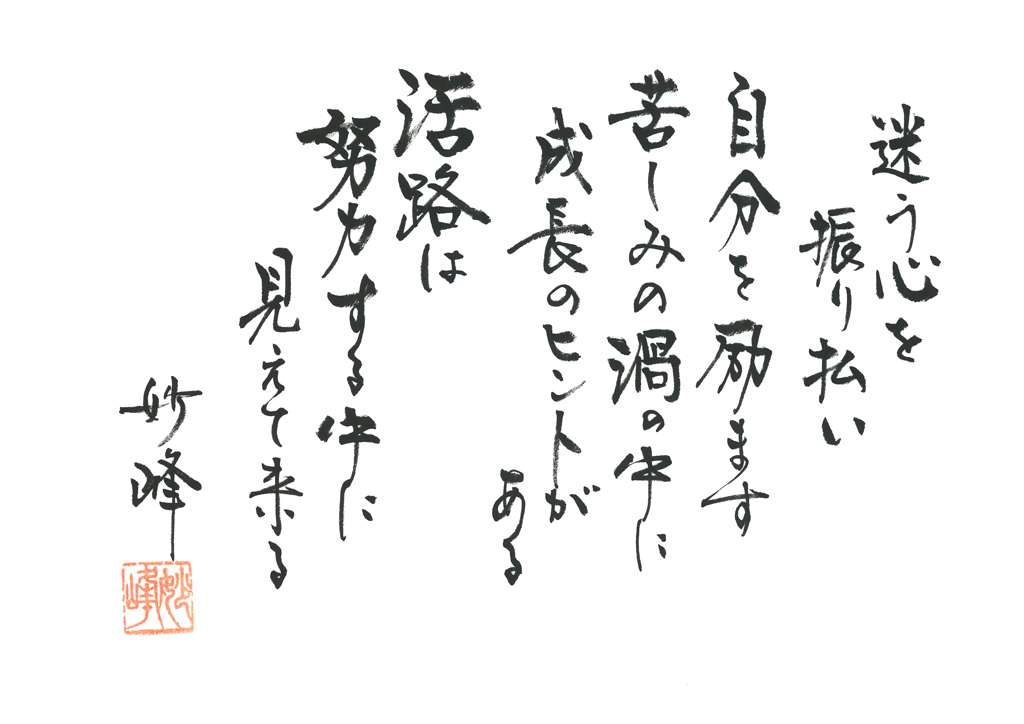 迷う心を
振り払い
自分を励ます
苦しみの渦の中に
成長のヒントが
ある
活路は
努力する中に
見えて来る
妙峰
妙峰